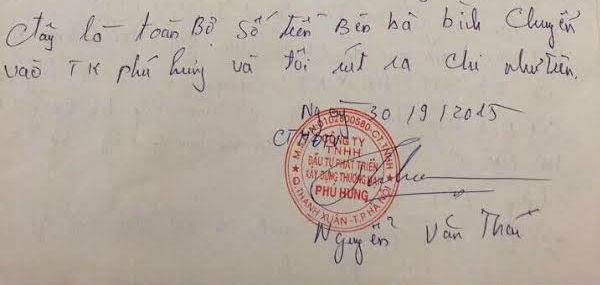 Đây là toàn Bộ Số tiền Bên bà bích Chuyển
vào TK phú hưng và tôi rút ra chi như trên.
Ngày 30/9/2015
CÔNG TY
TNHH
ĐẦU TƯ PHÁT TRIỂN
XÂY DỰNG THƯƠNG MẠI
PHÚ HƯNG
Q.THANH XUÂN-T.P HÀ NỘI
Nguyễn Văn